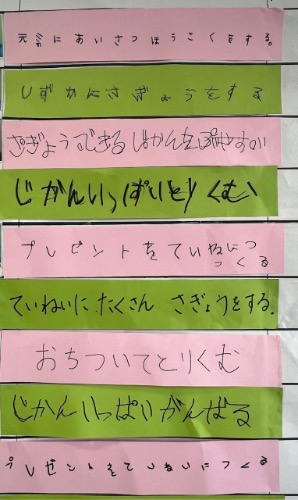 元気にあいさつほうこくをする。
しずかにさぎょうをする
さぎょうできるじかんを
じかんいっぱいとりくむ
プレゼントをていねいにつ
くる
ていねいに たくさん さぎょうをする.
おちついてとりくむ
じかんいっぱいがんばる
プレゼントをていねいにつくる